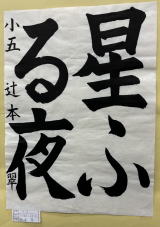 星ふ
る夜
小五 辻本 翠